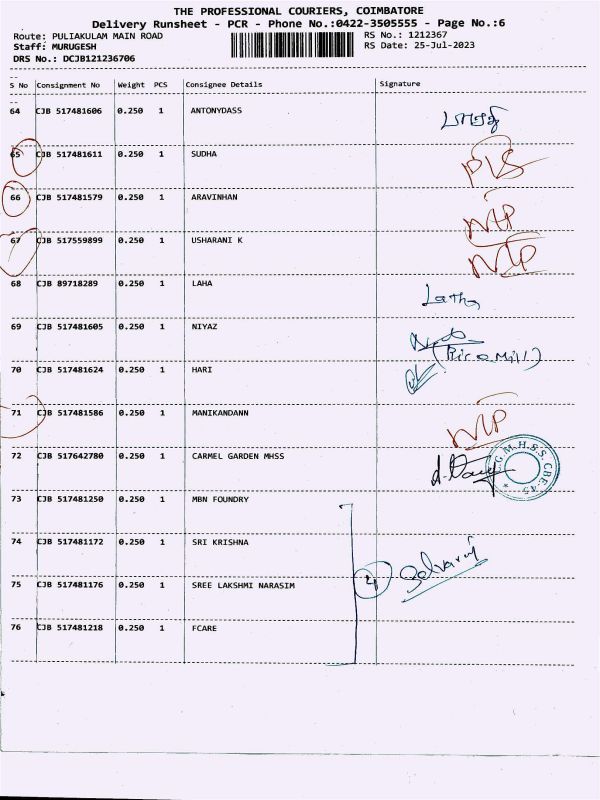 THE PROFESSIONAL COURIERS, COIMBATORE
Delivery Runsheet - PCR - Phone No.:0422-3505555 - Page No.:6
Route: PULIAKULAM MAIN ROAD RS No.: 1212367
Staff: MURUGESH RS Date: 25-Jul-2023
DRS No.: DCJB121236706
S No Consignment No Weight PCS Consignee Details Signature
64 CJB 517481606 0.250 1 ANTONYDASS
65 CJB 517481611 0.250 1 SUDHA
66 CJB 517481579 0.250 1 ARAVINHAN
67 CJB 517559899 0.250 1 USHARANI K
68 CJB 89718289 0.250 1 LAHA
69 CJB 517481605 0.250 1 NIYAZ
70 CJB 517481624 0.250 1 HARI
71 CJB 517481586 0.250 1 MANIKANDANN
72 CJB 517642780 0.250 1 CARMEL GARDEN MHSS
C.G.M.H.S.S. CBE-45
73 CJB 517481250 0.250 1 MBN FOUNDRY
74 CJB 517481172 0.250 1 SRI KRISHNA
4 Selvaraj
75 CJB 517481176 0.250 1 SREE LAKSHMI NARASIM
76 CJB 517481218 0.250 1 FCARE